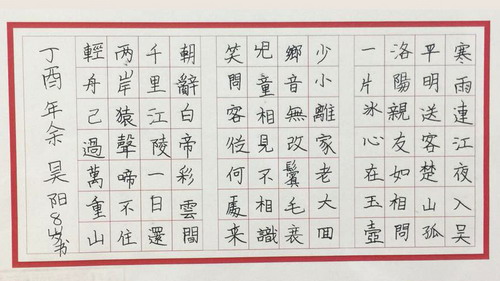 寒雨連江夜入吴
平明送客楚山孤
洛陽親友如相問
一片氷心在玉壺
少小離家老大回
鄉音無改鬢毛衰
児童相見不相識
笑問客從何處来
朝辭白帝彩雲間
千里江陵一日還
两岸猿聲啼不住
輕舟已過萬重山
丁酉年余昊阳8岁书